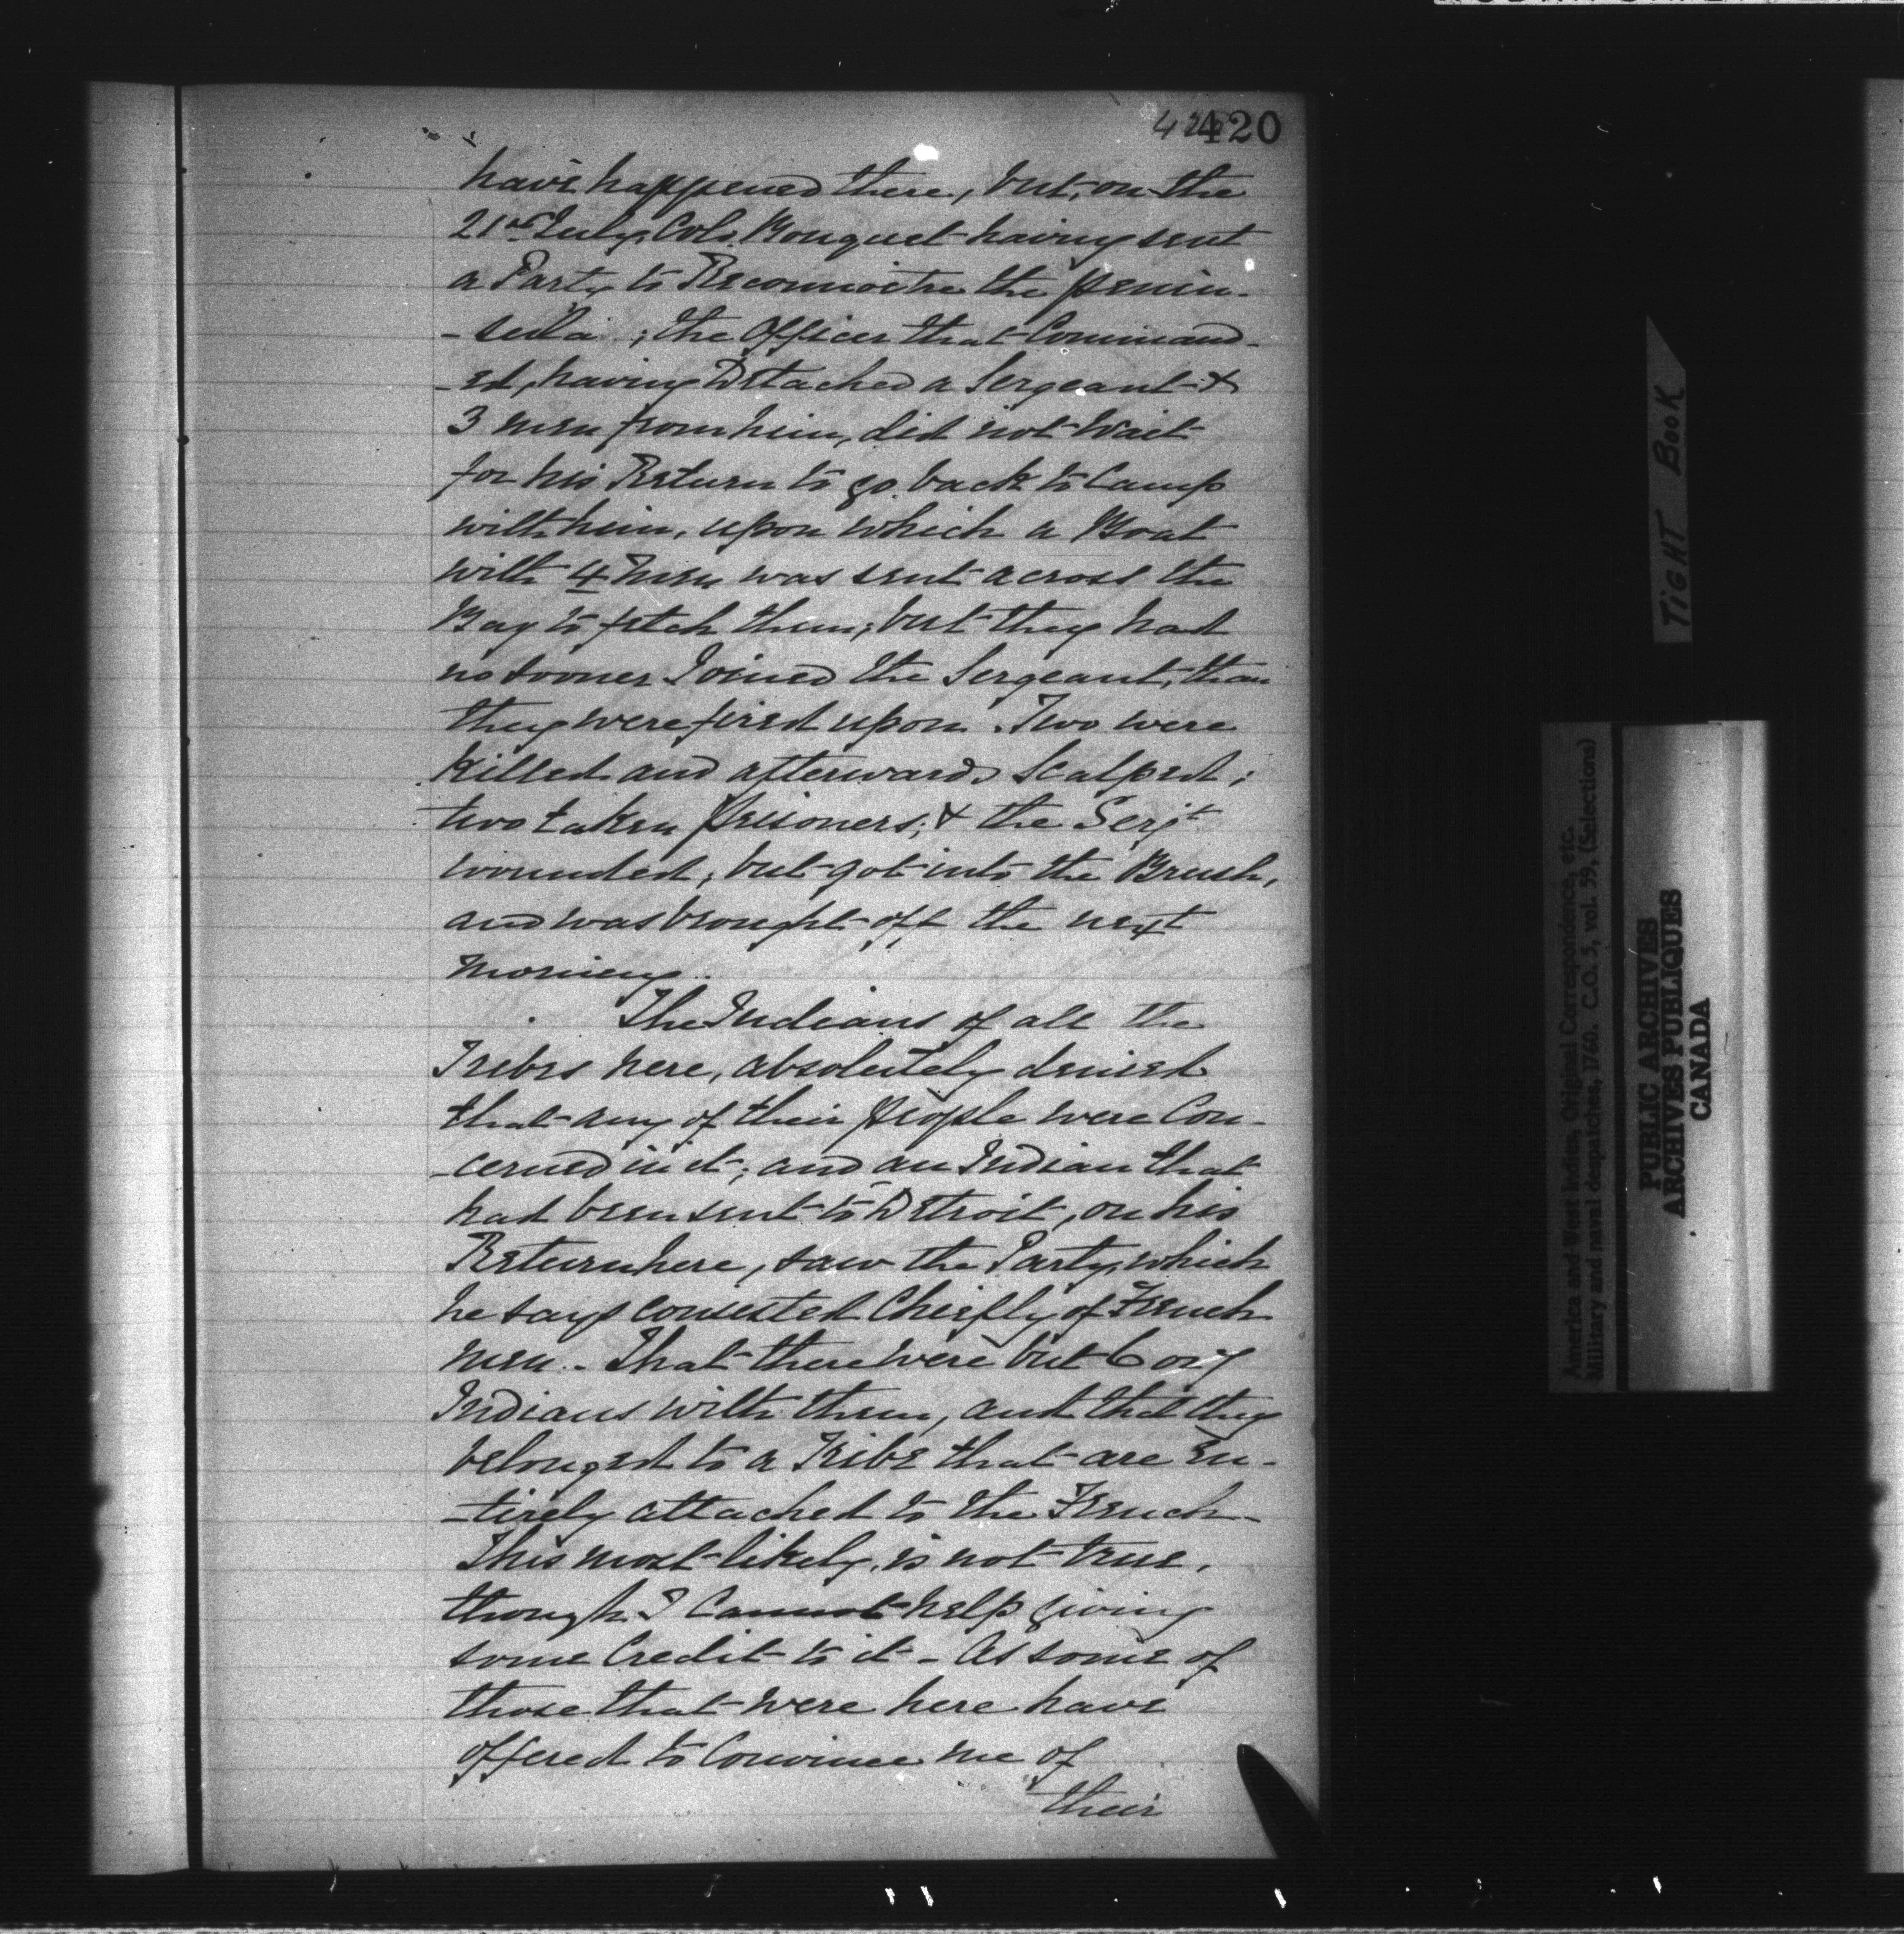 420
have happened there, but, on the
21st July, Col. Bouquet having sent
a Party to Reconnoitre the penin-
-sula ; the Officer that Command-
-ed, having Detached a Sergeant &
3 men from him, did not Wait
for his Return to go back to Camp
with him, upon which a Boat
with 4 men was sent across the
Bay to fetch them; but they had
no sooner Joined the Sergeant, than
they were fired upon. Two were
killed and afterwards Scalped;
two taken prisoners; & the Serjt
wounded, but got into the Brush,
and was brought off the next
morning.
The Indians of all the
Tribes here, absolutely denied
that any of their people were Con-
-cerned in it; and an Indian that
had been sent to Detroit, on his
Return here, saw the Party, which
he says consisted Chiefly of French
men - That there were but 6 or 7
Indians with them, and that they
belonged to a Tribe that are En-
-tirely attached to the French -
This most likely, is not true,
though I Cannot help giving
some Credit to it - As some of
those that were here have
offered to Convince me of
their
TIGHT BOOK
America and West Indies, Original Correspondence, etc.
Military and naval despatches, 1760. C.O. 5, vol. 59, (Selections)
PUBLIC ARCHIVES
ARCHIVES PUBLIQUES
CANADA